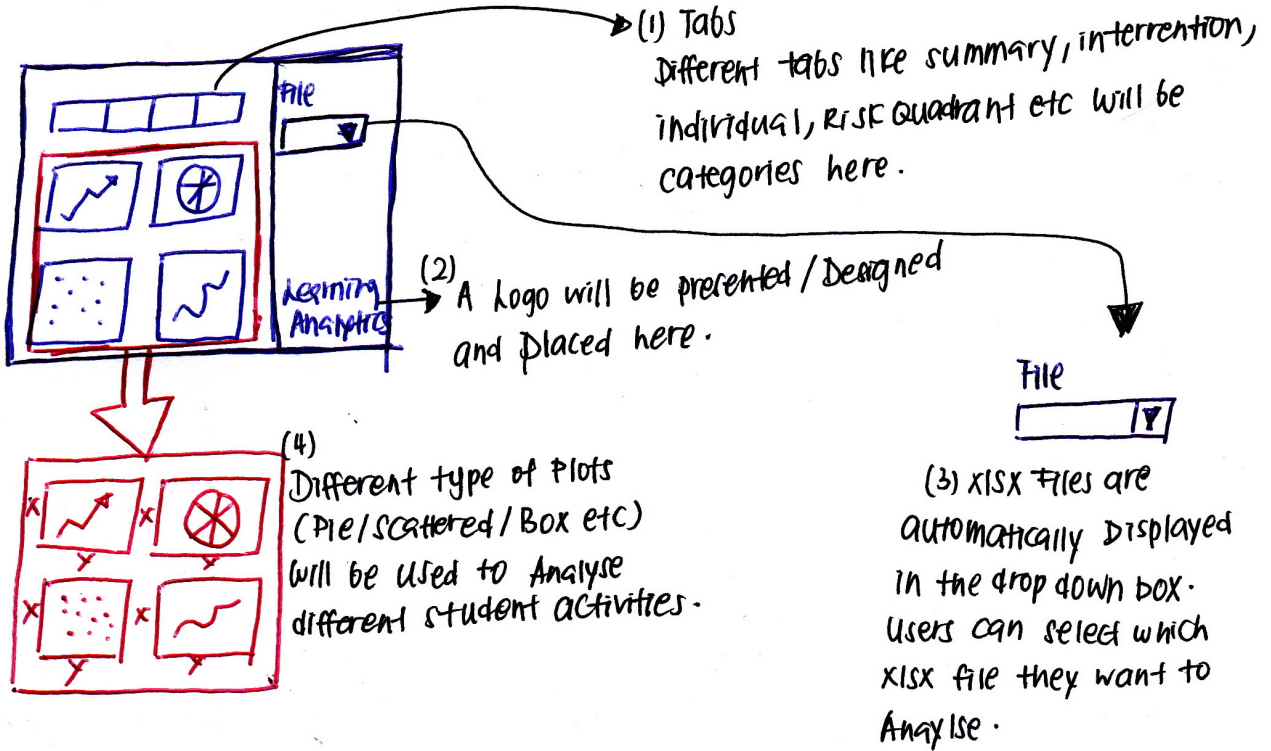 (1) Tabs
Different tabs like summary, interrention,
individual, Risk Quadrant etc will be
categories here.
File
Learning
Analytics
(2)
A Logo will be presented / Designed
and placed here.
File
(3) xlsx Files are
automatically Displayed
in the drop down box.
Users can select which
xlsx file they want to
Anaylse.
(4)
Different type of Plots
(Pie/scattered/Box etc)
will be used to Analyse
different student activities.
X
X
Y
Y
X
X
Y
Y